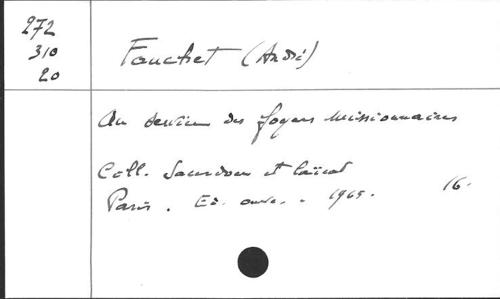 272
310
20
Fouchet (André)
Au service des foyers missionnaires
Coll. Sacerdoce et laïcat
Paris. Ed. ouvr. . 1965. 16.